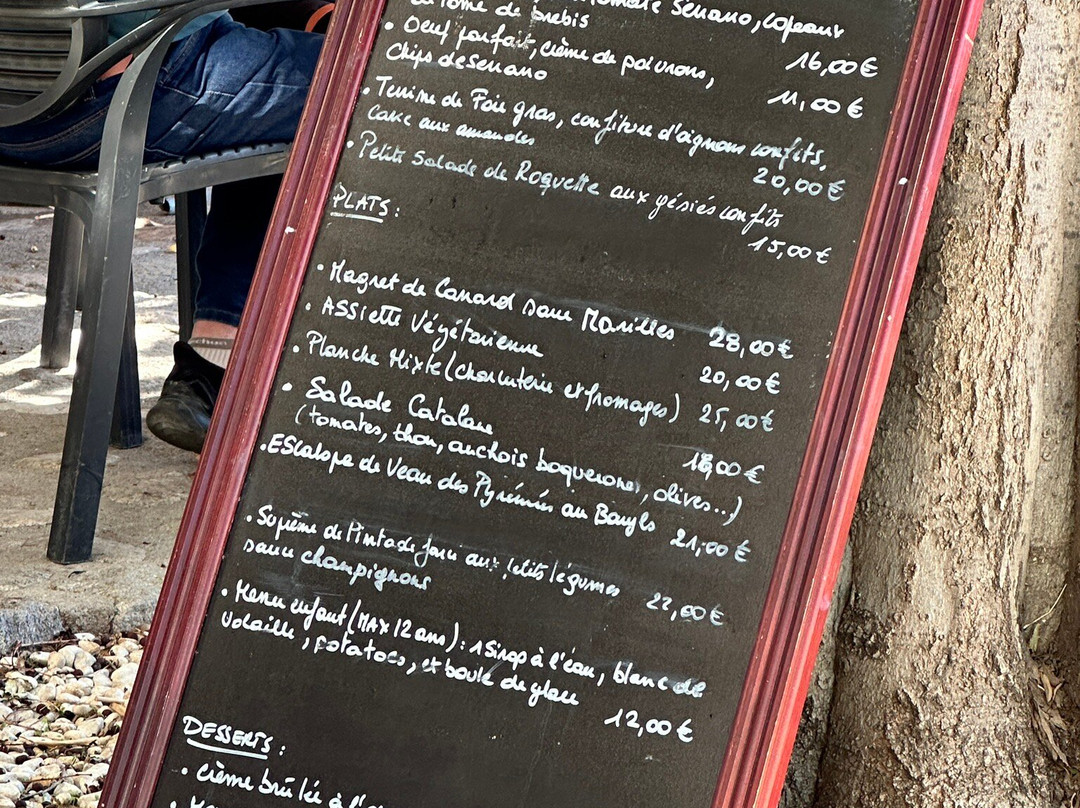 Serrano, copeaux
de tome de brebis
16,00€
• Oeuf parfait, crème de poivrons,
Chips de Serrano
11,00€
• Terrine de Foie gras, confiture d'oignons confits,
Cake aux amandes
20,00€
• Petite Salade de Roquette aux gésiés confits
15,00€
PLATS:
• Magret de Canard sauce Morilles 28,00€
• ASSiette Végétarienne 20,00€
• Planche Mixte (charcuterie et fromages) 25,00€
• Salade Catalane 18,00€
(tomates, thon, anchois boquerones, olives...)
• ESCalope de Veau des Pyrénées au Banyls 21,00€
• Suprême de Pintade aux petits légumes 22,00€
sauce champignons
• Menu enfant (MAX 12 ans): 1 Sirop à l'eau, blanc de
Volaille, potatoes, et boule de glace
12,00€
DESSERTS:
• crème brûlée à